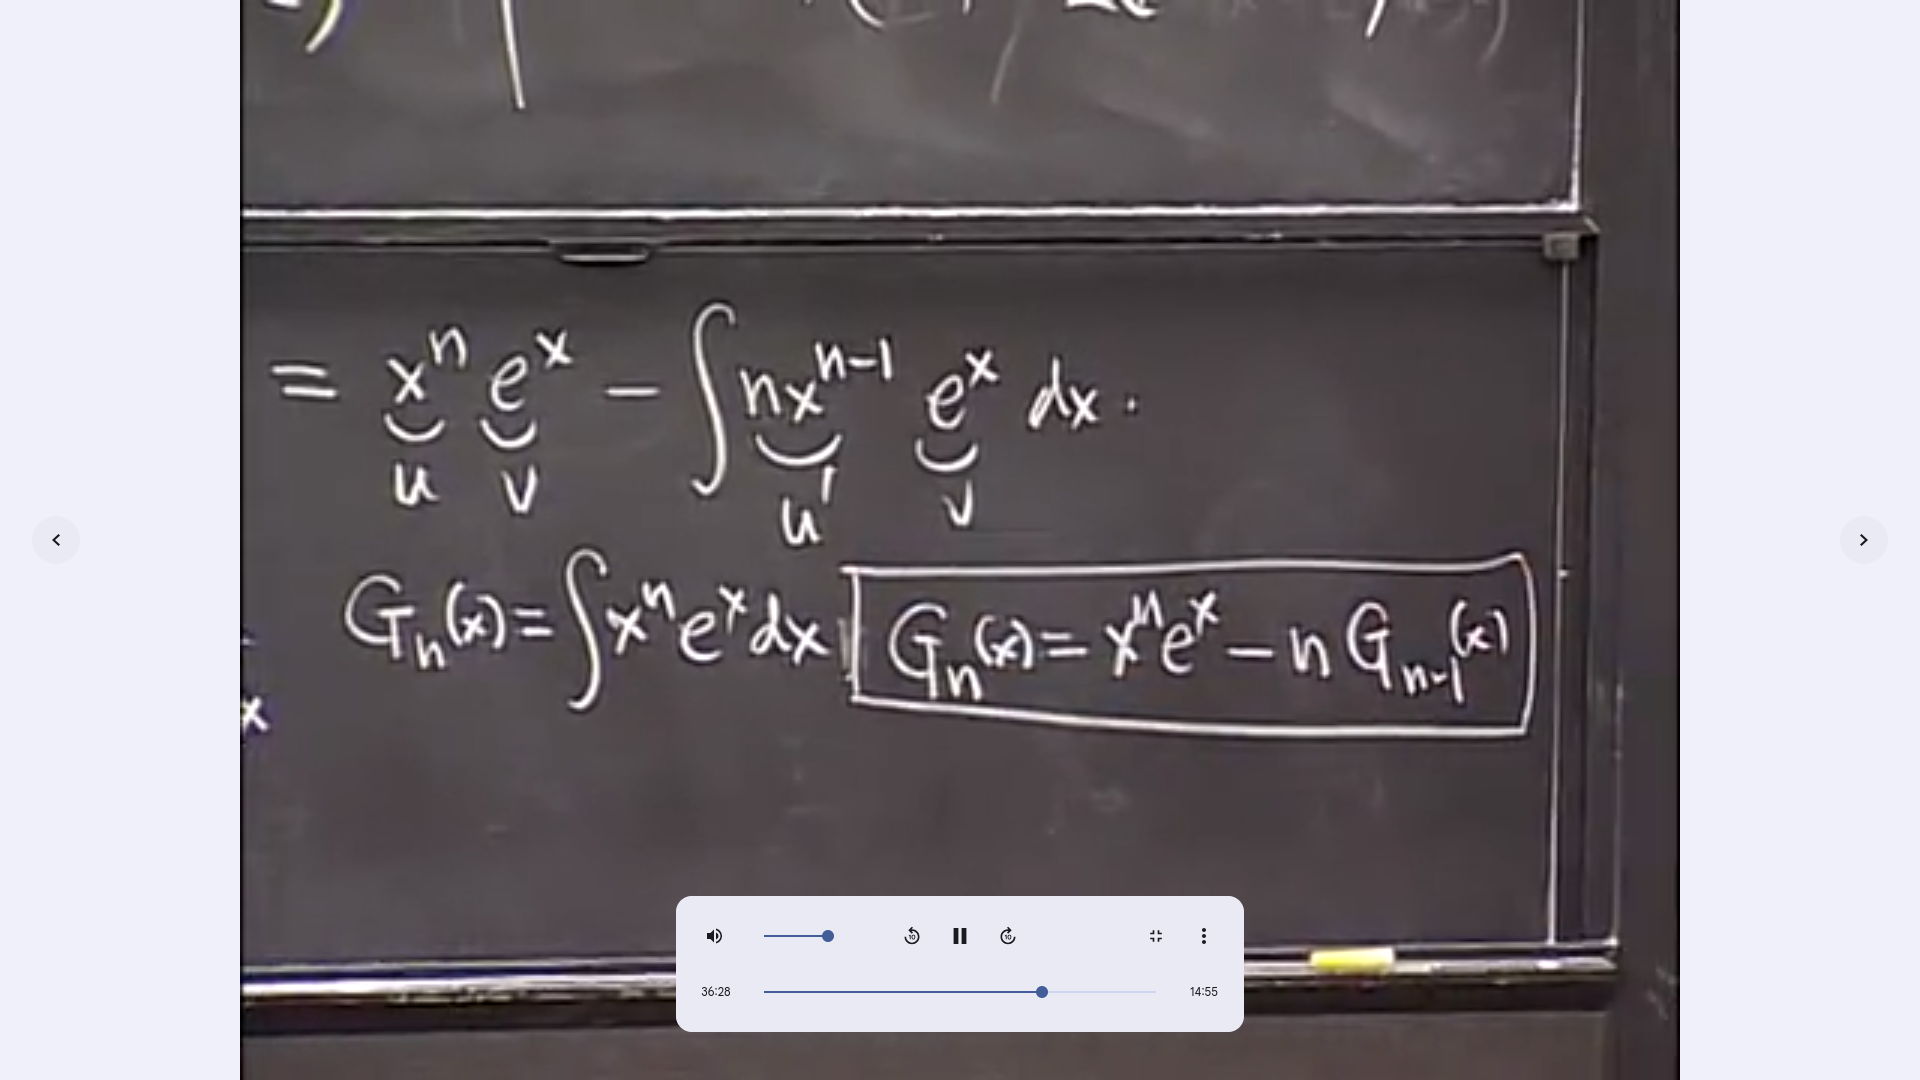 = xⁿ eˣ − ∫ nxⁿ⁻¹ eˣ dx.
u v u' v
Gₙ(x) = ∫ xⁿeˣdx Gₙ(x) = xⁿeˣ − n Gₙ₋₁(x)
x
36:28 14:55